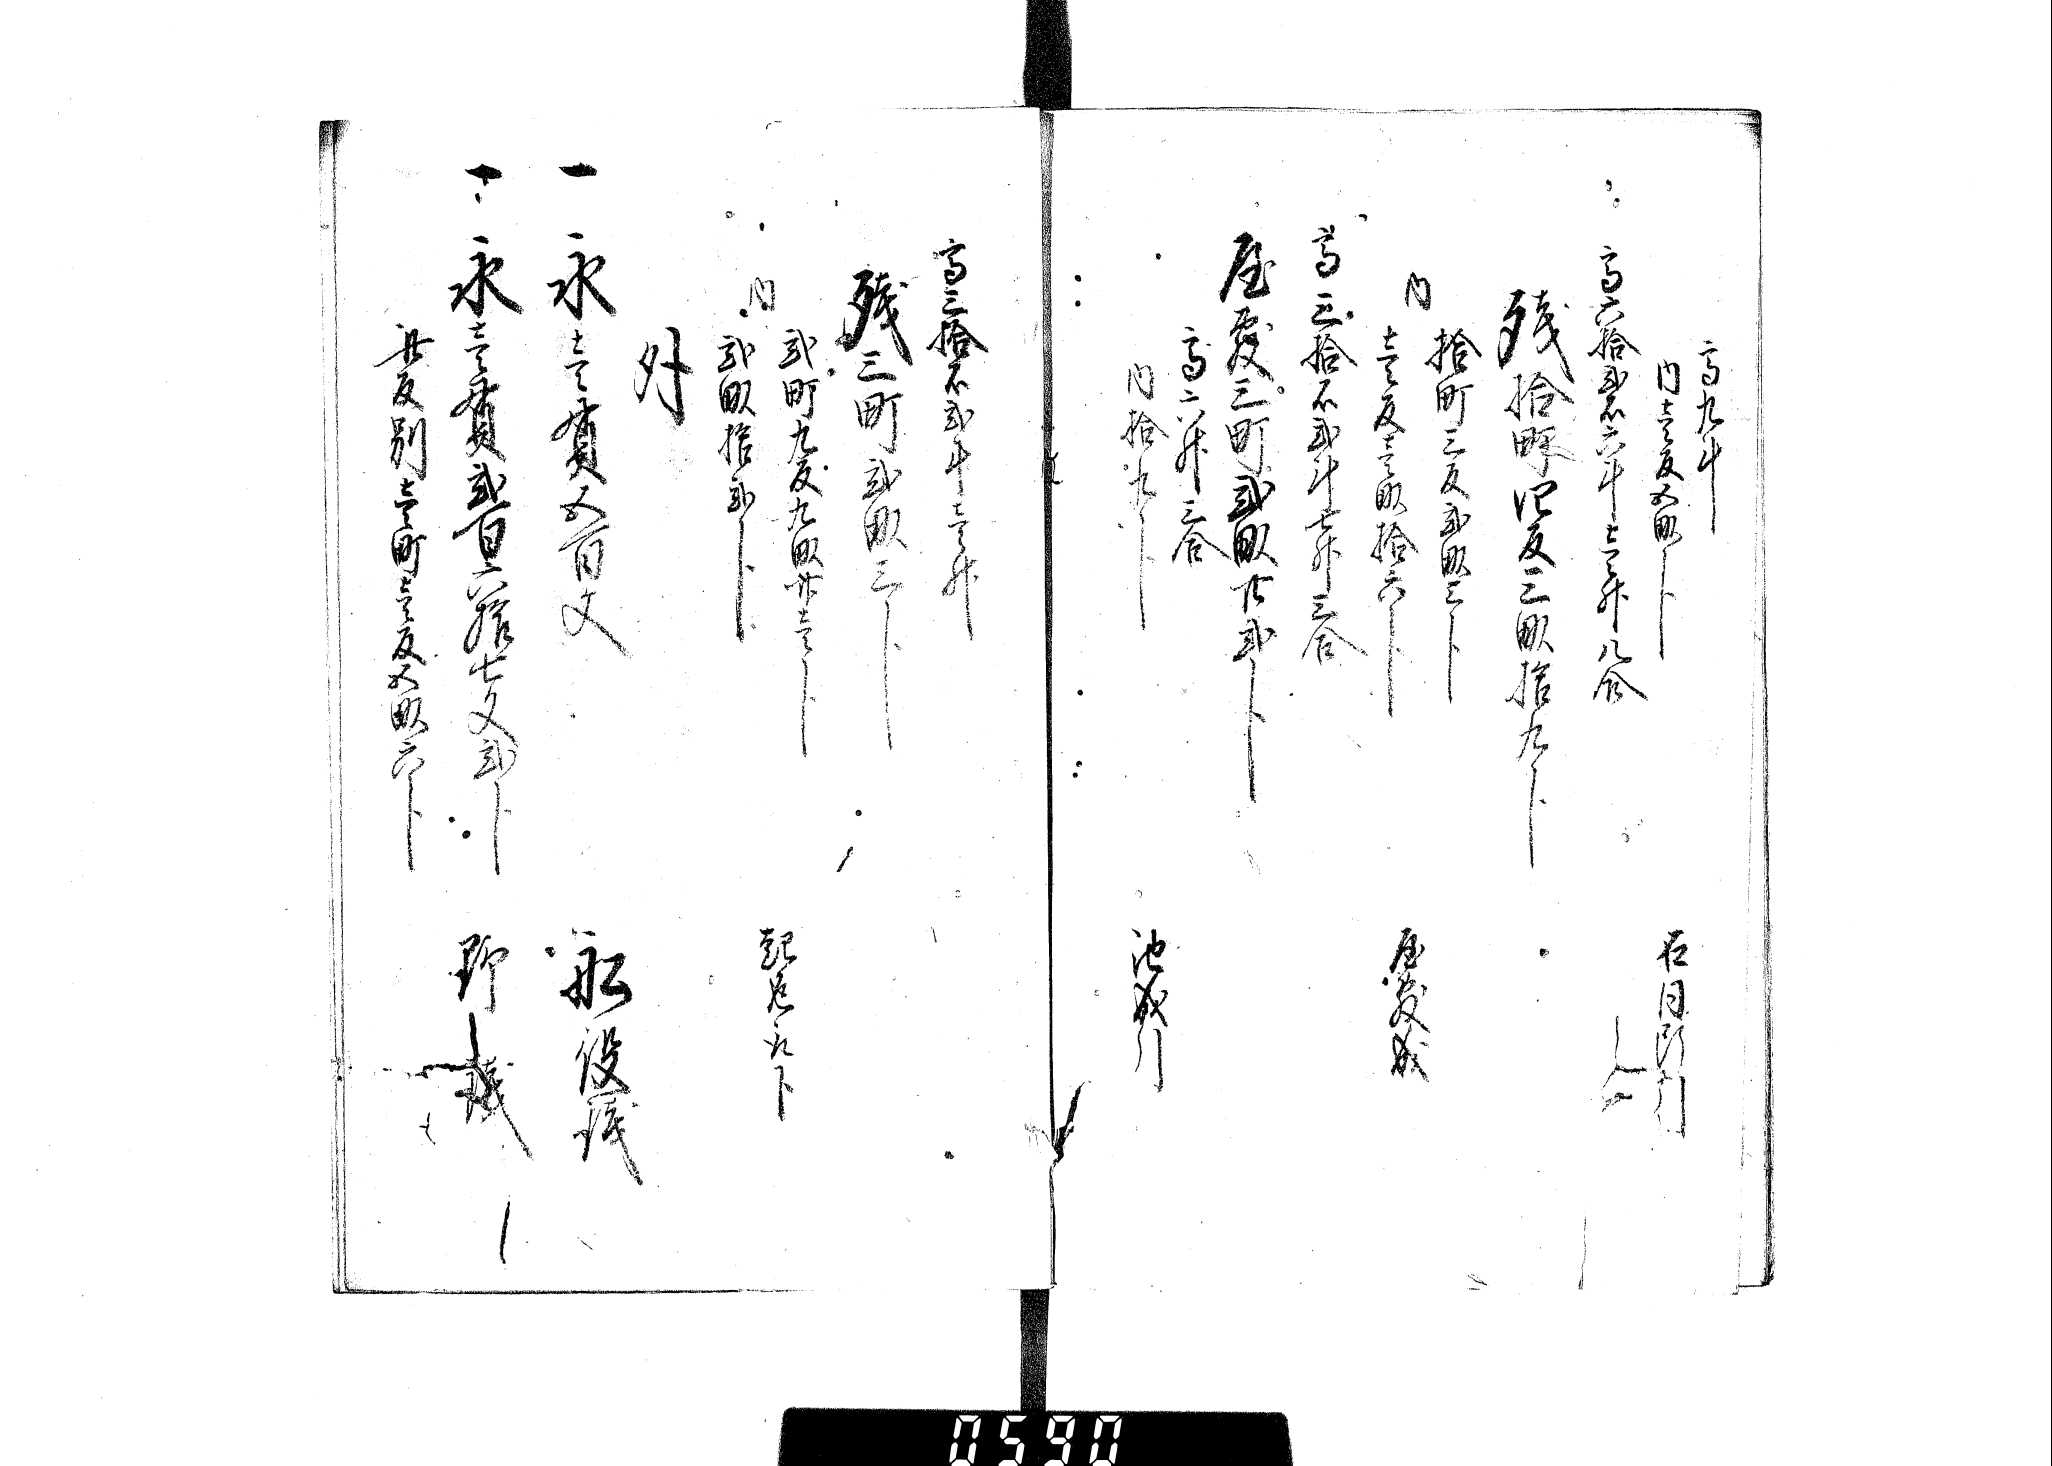 高九斗
内壱反五畝卜
石間引
高六拾弐石六斗壱升八合
残拾町四反三畝拾九卜
拾町三反弐畝三卜
内
壱反壱畝拾六卜
屋敷成
高三拾石弐斗七升三合
屋敷三町弐畝廿弐卜
高六升三合
内拾九卜
池成引
高三拾石弐斗壱升
残三町弐畝三卜
弐町九反九畝廿壱卜
内
弐畝拾弐卜
外
一 永壱貫五百文
船役銭
一 永壱貫弐百六拾七文弐卜
野銭
此反別壱町壱反五畝六卜
0590